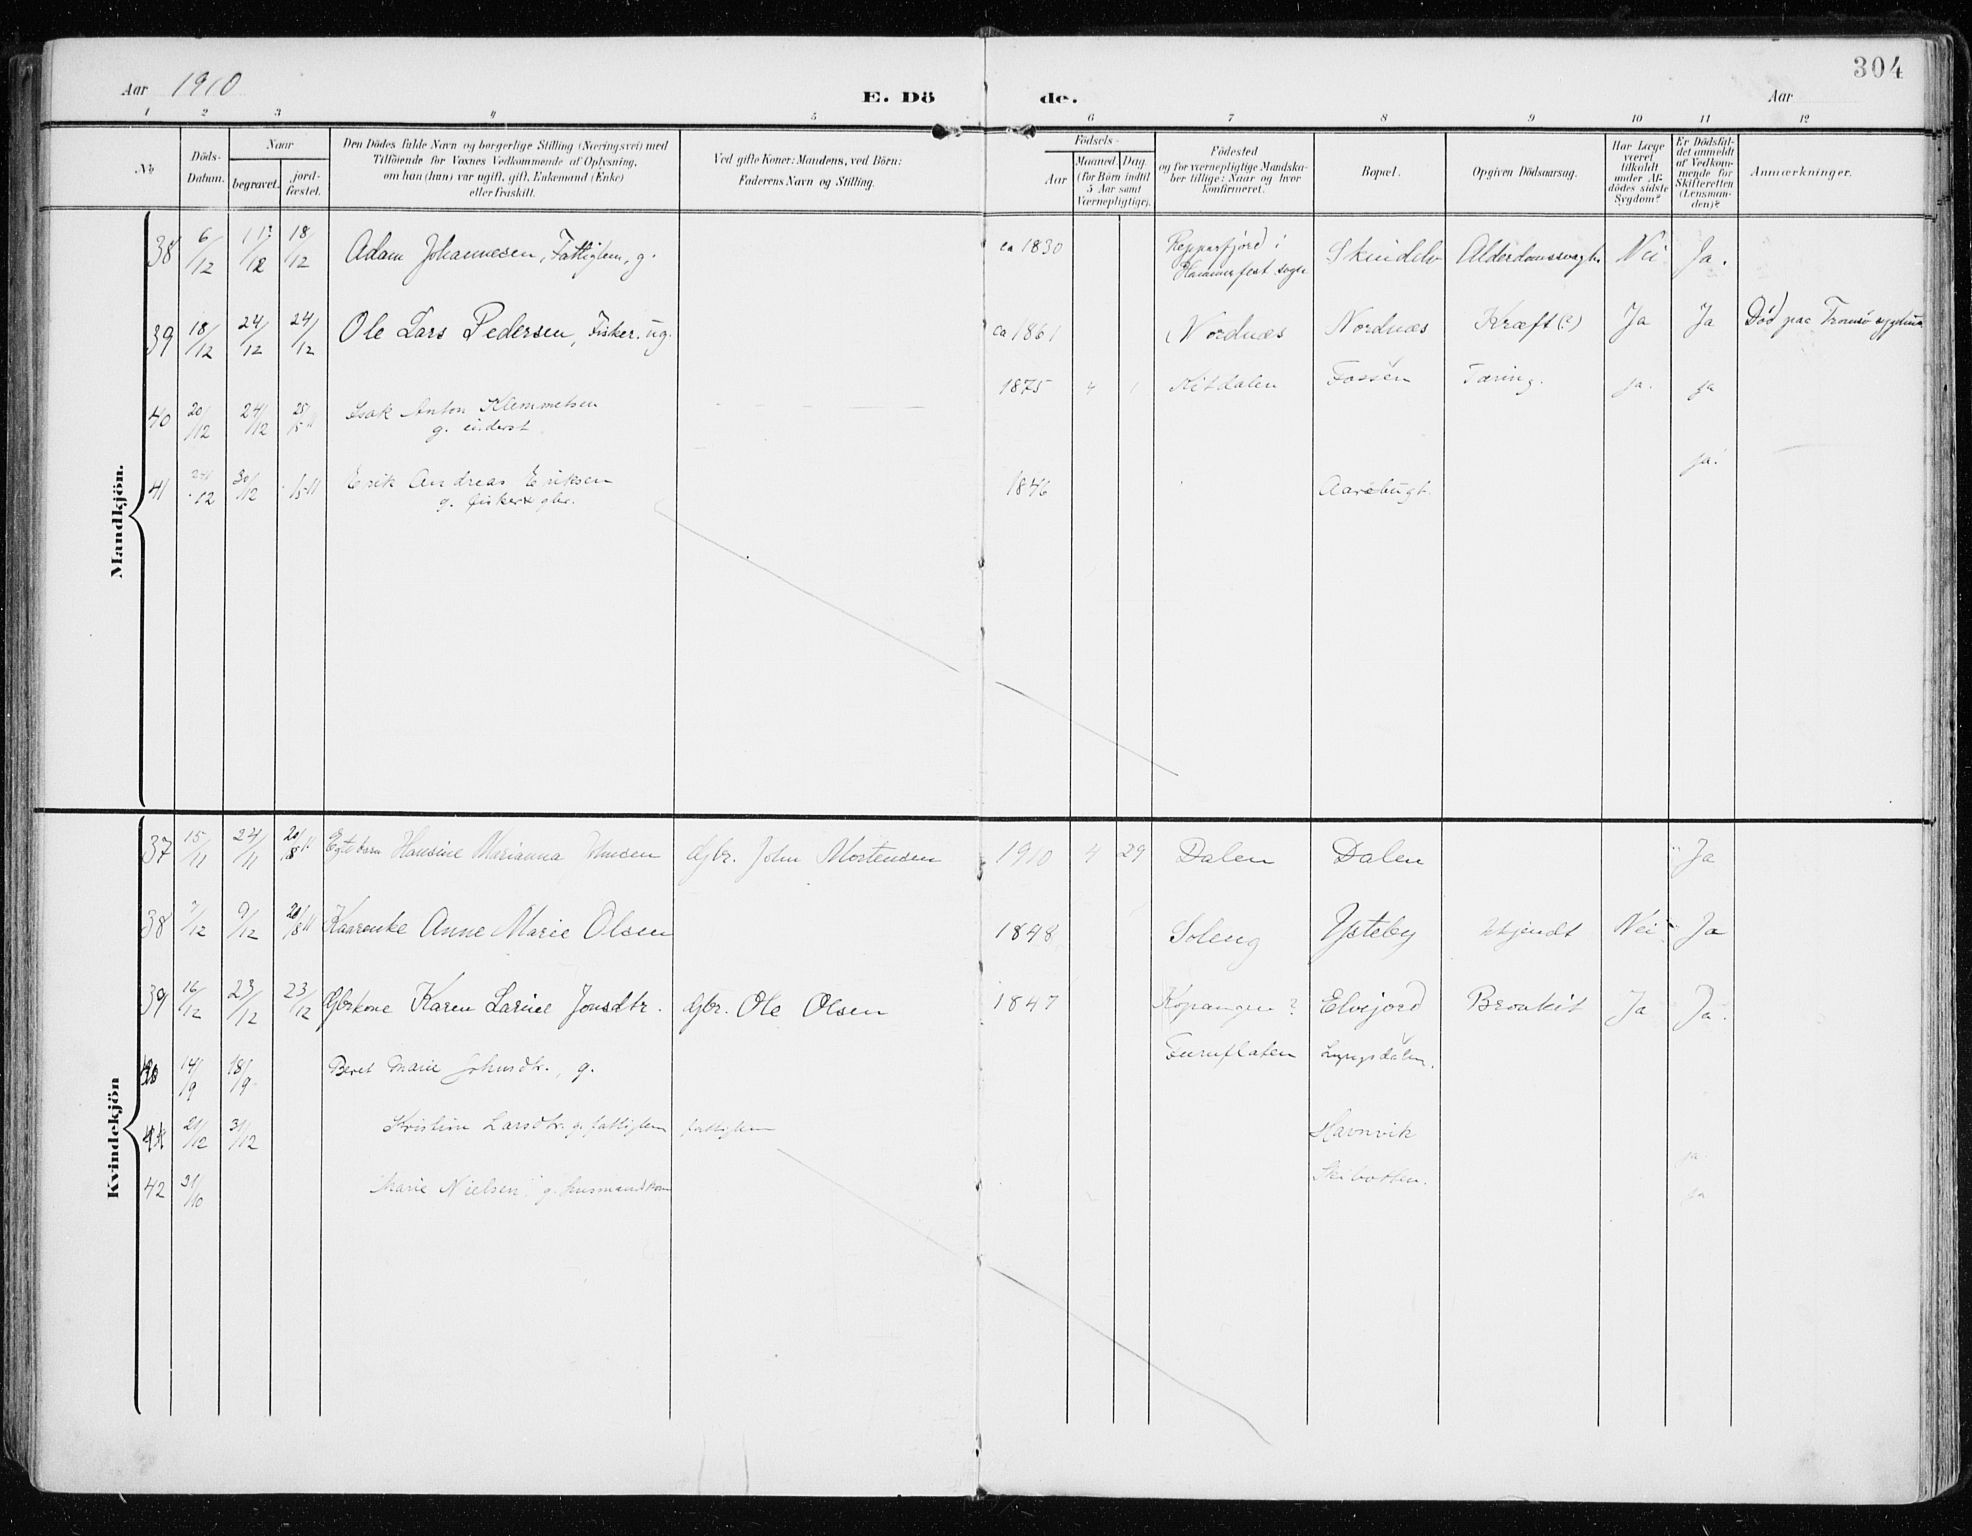 304
Aar 1910
E. Dö de.
Aar
1 2 3 4 5 6 7 8 9 10 11 12
No
Döds-Datum.
Naar
begravet.
jord-fæstet.
Den Dödes fulde Navn og borgerlige Stilling (Næringsvei) med
Tilföiende for Voxnes Vedkommende af Oplysning,
om han (hun) var ugift, gift, Enkemand (Enke)
eller fraskilt.
Ved gifte Koner: Mandens, ved Börn:
Faderens Navn og Stilling.
Födsels-
Aar
Maaned. Dag.
(for Börn indtil
5 Aar samt
Værnepligtige).
Födested
og for værnepligtige Mandska-
ber tillige: Naar og hvor
konfirmeret.
Bopæl.
Opgiven Dödsaarsag.
Har Læge
været
tilkaldt
under Af-
dödes sidste
Sygdom?
Er Dödsfal-
det anmeldt
af Vedkom-
mende for
Skifteretten
(Lensman-
den)?
Anmærkninger.
Mandkjön.
38 6/12 /12 18/12 Adam Johannesen, Fattiglem, g. ca 1830 Repparfjord i Skindelv Alderdomssvagh. Nei Ja.
Hammerfest sogn
39 18/12 24/12 24/12 Ole Lars Pedersen, Fisker. ug. ca 1861 Nordnæs Nordnæs Kræft (?) Ja Ja Død paa Tromsø
40 20/12 24/12 25/5 11 Isak Anton Klemmetsen 1875 4 1 Kitdalen Fossen Tæring. ja. ja
g. inderst
41 24/12 30/12 /5 11 Erik Andreas Eriksen 1846 Aarøbugt. ja.
g. fisker & gbr.
Kvindekjön
37 15/11 24/11 20/8 11 Egtebarn Hansine Marianna Gbr. John Mortensen 1910 4 29 Dalen Dalen Ja
38 /12 9/12 20/8 11 Kaarenke Anne Marie Olsen 1848 Soleng Ysteby Ukjendt Nei Ja
39 16/12 23/12 23/12 Gbrkone Karen Larine Jonsdtr. Gbr. Ole Olsen 1847 Kopangen? Elvejord Bronkit Ja Ja.
14/9 18/9 Beret Marie Johnsdtr., g. Furuflaten Lyngsdalen.
41 21/12 31/12 Kristine Larsdtr. g. fattiglem fattiglem Havnvik ja
42 31/10 Marie Nielsen g. husmandskone Skibotten. ja